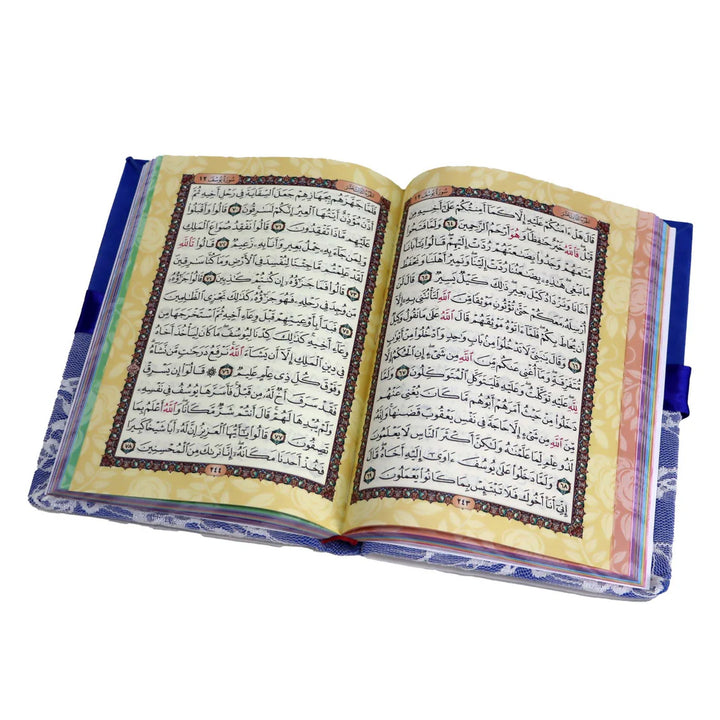 الجزء الثالث عشر سورة يوسف ١٢
قَالَ هَلْ ءَامَنُكُمْ عَلَيْهِ إِلَّا كَمَآ أَمِنتُكُمْ عَلَىٰٓ أَخِيهِ مِن
قَبْلُ فَٱللَّهُ خَيْرٌ حَٰفِظًا وَهُوَ أَرْحَمُ ٱلرَّٰحِمِينَ ٦٤ وَلَمَّا فَتَحُوا۟
مَتَٰعَهُمْ وَجَدُوا۟ بِضَٰعَتَهُمْ رُدَّتْ إِلَيْهِمْ قَالُوا۟ يَٰٓأَبَانَا
مَا نَبْغِى هَٰذِهِۦ بِضَٰعَتُنَا رُدَّتْ إِلَيْنَا وَنَمِيرُ أَهْلَنَا وَنَحْفَظُ
أَخَانَا وَنَزْدَادُ كَيْلَ بَعِيرٍ ذَٰلِكَ كَيْلٌ يَسِيرٌ ٦٥ قَالَ لَنْ
أُرْسِلَهُۥ مَعَكُمْ حَتَّىٰ تُؤْتُونِ مَوْثِقًا مِّنَ ٱللَّهِ لَتَأْتُنَّنِى بِهِۦٓ إِلَّآ
أَن يُحَاطَ بِكُمْ فَلَمَّآ ءَاتَوْهُ مَوْثِقَهُمْ قَالَ ٱللَّهُ عَلَىٰ مَا نَقُولُ وَكِيلٌ
٦٦ وَقَالَ يَٰبَنِىَّ لَا تَدْخُلُوا۟ مِنۢ بَابٍ وَٰحِدٍ وَٱدْخُلُوا۟ مِنْ أَبْوَٰبٍ
مُّتَفَرِّقَةٍ وَمَآ أُغْنِى عَنكُم مِّنَ ٱللَّهِ مِن شَىْءٍ إِنِ ٱلْحُكْمُ إِلَّا
لِلَّهِ عَلَيْهِ تَوَكَّلْتُ وَعَلَيْهِ فَلْيَتَوَكَّلِ ٱلْمُتَوَكِّلُونَ ٦٧ وَلَمَّا
دَخَلُوا۟ مِنْ حَيْثُ أَمَرَهُمْ أَبُوهُم مَّا كَانَ يُغْنِى عَنْهُم
مِّنَ ٱللَّهِ مِن شَىْءٍ إِلَّا حَاجَةً فِى نَفْسِ يَعْقُوبَ قَضَىٰهَا وَإِنَّهُۥ
لَذُو عِلْمٍ لِّمَا عَلَّمْنَٰهُ وَلَٰكِنَّ أَكْثَرَ ٱلنَّاسِ لَا يَعْلَمُونَ
٦٨ وَلَمَّا دَخَلُوا۟ عَلَىٰ يُوسُفَ ءَاوَىٰٓ إِلَيْهِ أَخَاهُ قَالَ
إِنِّىٓ أَنَا۠ أَخُوكَ فَلَا تَبْتَئِسْ بِمَا كَانُوا۟ يَعْمَلُونَ ٦٩
٢٤٣
الجزء الثالث عشر سورة يوسف ١٢
فَلَمَّا جَهَّزَهُم بِجَهَازِهِمْ جَعَلَ ٱلسِّقَايَةَ فِى رَحْلِ أَخِيهِ ثُمَّ
أَذَّنَ مُؤَذِّنٌ أَيَّتُهَا ٱلْعِيرُ إِنَّكُمْ لَسَٰرِقُونَ ٧٠ قَالُوا۟ وَأَقْبَلُوا۟
عَلَيْهِم مَّاذَا تَفْقِدُونَ ٧١ قَالُوا۟ نَفْقِدُ صُوَاعَ ٱلْمَلِكِ
وَلِمَن جَآءَ بِهِۦ حِمْلُ بَعِيرٍ وَأَنَا۠ بِهِۦ زَعِيمٌ ٧٢ قَالُوا۟ تَٱللَّهِ
لَقَدْ عَلِمْتُم مَّا جِئْنَا لِنُفْسِدَ فِى ٱلْأَرْضِ وَمَا كُنَّا سَٰرِقِينَ
٧٣ قَالُوا۟ فَمَا جَزَٰٓؤُهُۥٓ إِن كُنتُمْ كَٰذِبِينَ ٧٤ قَالُوا۟ جَزَٰٓؤُهُۥ
مَن وُجِدَ فِى رَحْلِهِۦ فَهُوَ جَزَٰٓؤُهُۥ كَذَٰلِكَ نَجْزِى ٱلظَّٰلِمِينَ
٧٥ فَبَدَأَ بِأَوْعِيَتِهِمْ قَبْلَ وِعَآءِ أَخِيهِ ثُمَّ ٱسْتَخْرَجَهَا مِن
وِعَآءِ أَخِيهِ كَذَٰلِكَ كِدْنَا لِيُوسُفَ مَا كَانَ لِيَأْخُذَ أَخَاهُ
فِى دِينِ ٱلْمَلِكِ إِلَّآ أَن يَشَآءَ ٱللَّهُ نَرْفَعُ دَرَجَٰتٍ مَّن نَّشَآءُ
وَفَوْقَ كُلِّ ذِى عِلْمٍ عَلِيمٌ ٧٦ قَالُوٓا۟ إِن يَسْرِقْ
فَقَدْ سَرَقَ أَخٌ لَّهُۥ مِن قَبْلُ فَأَسَرَّهَا يُوسُفُ فِى نَفْسِهِۦ
وَلَمْ يُبْدِهَا لَهُمْ قَالَ أَنتُمْ شَرٌّ مَّكَانًا وَٱللَّهُ أَعْلَمُ بِمَا
تَصِفُونَ ٧٧ قَالُوا۟ يَٰٓأَيُّهَا ٱلْعَزِيزُ إِنَّ لَهُۥٓ أَبًا شَيْخًا كَبِيرًا
فَخُذْ أَحَدَنَا مَكَانَهُۥٓ إِنَّا نَرَىٰكَ مِنَ ٱلْمُحْسِنِينَ ٧٨
٢٤٤